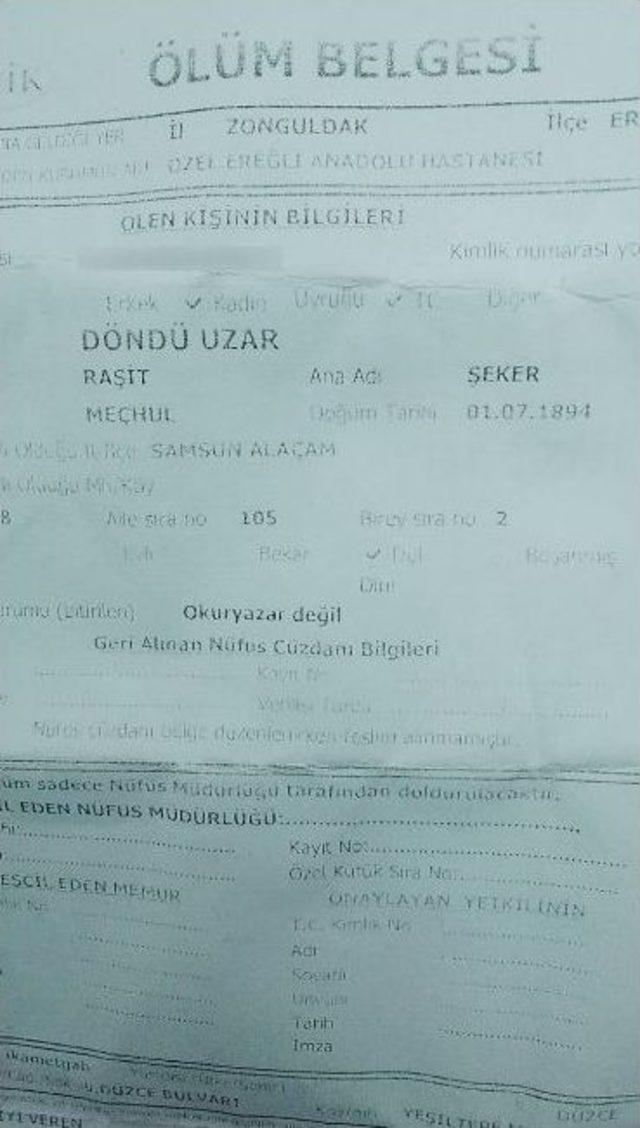 ÖLÜM BELGESİ
İl ZONGULDAK İlçe ER
ÖZEL EREĞLİ ANADOLU HASTANESİ
ÖLEN KİŞİNİN BİLGİLERİ
Kimlik numarası yo
Erkek ✓ Kadın Uyruğu ✓ TC Diğer
DÖNDÜ UZAR
RAŞİT Ana Adı ŞEKER
MEÇHUL Doğum Tarihi 01.07.1894
SAMSUN ALAÇAM
8 Aile sıra no 105 Birey sıra no 2
Evli Bekar ✓ Dul Boşanmış
Dini
urumu (bitirilen) Okuryazar değil
Geri Alınan Nüfus Cüzdanı Bilgileri
Kayıt No
Nüfus cüzdanı belge düzenlenirken teslim alınmamıştır.
üm sadece Nüfus Müdürlüğü tarafından doldurulacaktır.
İL EDEN NÜFUS MÜDÜRLÜĞÜ:
Kayıt No:
Özel Kütük Sıra No:
ESCİL EDEN MEMUR ONAYLAYAN YETKİLİNİN
T.C. Kimlik No
Adı
Soyadı
Ünvanı
Tarih
İmza
ikametgah
DÜZCE BULVARI
YEŞİLTEPE DÜZCE
İYİ VEREN